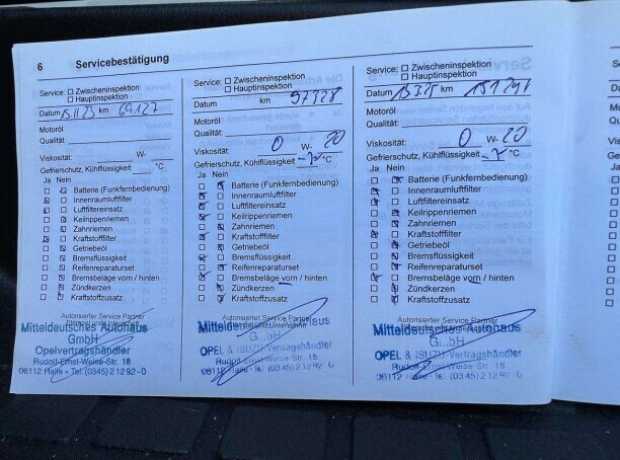 6 Servicebestätigung
Service: Zwischeninspektion
Hauptinspektion
Datum km 69127
Motoröl
Qualität
Viskosität: W-
Gefrierschutz, Kühlflüssigkeit °C
Ja Nein
Batterie (Funkfernbedienung)
Innenraumluftfilter
Luftfiltereinsatz
Keilrippenriemen
Zahnriemen
Kraftstofffilter
Getriebeöl
Bremsflüssigkeit
Reifenreparaturset
Bremsbeläge vorn / hinten
Zündkerzen
Kraftstoffzusatz
Autorisierter Service Partner
Mitteldeutsches Autohaus
GmbH
Opelvertragshändler
Rudolf-Ernst-Weise-Str. 18
06112 Halle • Tel. (0345) 2 12 92 - 0
Service: Zwischeninspektion
Hauptinspektion
Datum km 97328
Motoröl
Qualität:
Viskosität: 0 W- 20
Gefrierschutz, Kühlflüssigkeit °C
Ja Nein
Batterie (Funkfernbedienung)
Innenraumluftfilter
Luftfiltereinsatz
Keilrippenriemen
Zahnriemen
Kraftstofffilter
Getriebeöl
Bremsflüssigkeit
Reifenreparaturset
Bremsbeläge vorn / hinten
Zündkerzen
Kraftstoffzusatz
Autorisierter Service Partner
Mitteldeutsches Autohaus
OPEL & ISUZU Vertragshändler
06112 Halle (0345) 2 12 92 - 0
Service: Zwischeninspektion
Hauptinspektion
Datum km
Motoröl
Qualität:
Viskosität: 0 W- 20
Gefrierschutz, Kühlflüssigkeit °C
Ja Nein
Batterie (Funkfernbedienung)
Innenraumluftfilter
Luftfiltereinsatz
Keilrippenriemen
Zahnriemen
Kraftstofffilter
Getriebeöl
Bremsflüssigkeit
Reifenreparaturset
Bremsbeläge vorn / hinten
Zündkerzen
Kraftstoffzusatz
Autorisierter Service Partner
Mitteldeutsches Autohaus
OPEL & ISUZU Vertragshändler
Weise Str. 18
06112 Halle (03 45) 2 12 92 - 0